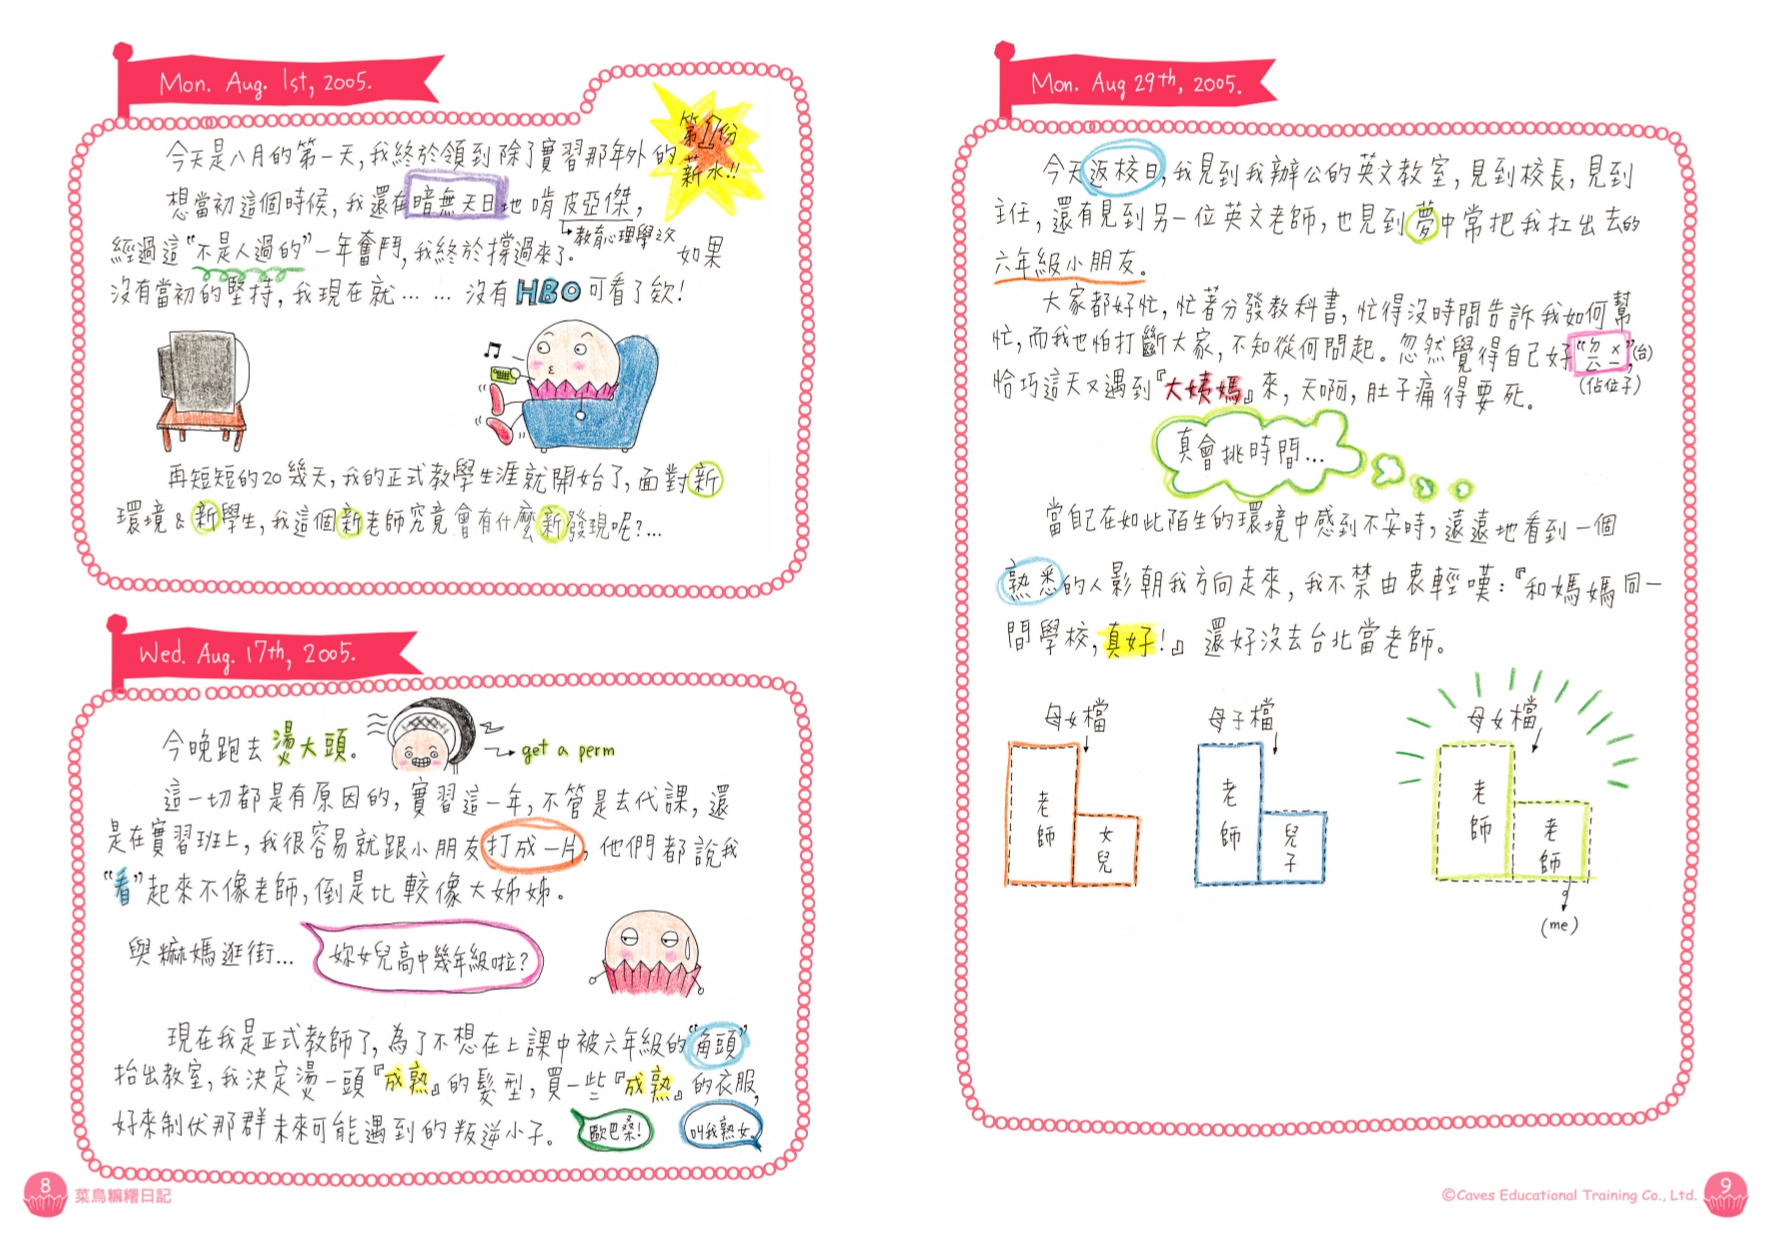 Mon. Aug. 1st, 2005.
今天是八月的第一天,我終於領到除了實習那年外的
第1份
薪水!!
想當初這個時候,我還在暗無天日地啃皮亞傑,
教育心理學之父
經過這“不是人過的”一年奮鬥,我終於撐過來了。如果
沒有當初的堅持,我現在就……沒有HBO可看了欸!
再短短的20幾天,我的正式教學生涯就開始了,面對新
環境&新學生,我這個新老師究竟會有什麼新發現呢?...
Wed. Aug. 17th, 2005.
今晚跑去燙大頭。
get a perm
這一切都是有原因的,實習這一年,不管是去代課,還
是在實習班上,我很容易就跟小朋友打成一片,他們都說我
“看”起來不像老師,倒是比較像大姊姊。
與嫲媽逛街...
妳女兒高中幾年級啦?
現在我是正式教師了,為了不想在上課中被六年級的“角頭”
抬出教室,我決定燙一頭『成熟』的髮型,買一些『成熟』的衣服,
好來制伏那群未來可能遇到的叛逆小子。
歐巴桑!
叫我熟女
8
菜鳥嫲糬日記
Mon. Aug 29th, 2005.
今天返校日,我見到我辦公的英文教室,見到校長,見到
主任,還有見到另一位英文老師,也見到夢中常把我扛出去的
六年級小朋友。
大家都好忙,忙著分發教科書,忙得沒時間告訴我如何幫
忙,而我也怕打斷大家,不知從何問起。忽然覺得自己好
(台)
(佔位子)
恰巧這天又遇到『大姨媽』來,天啊,肚子痛得要死。
真會挑時間...
當自己在如此陌生的環境中感到不安時,遠遠地看到一個
熟悉的人影朝我方向走來,我不禁由衷輕嘆:『和媽媽同一
間學校,真好!』還好沒去台北當老師。
母女檔
老師
女兒
母子檔
老師
兒子
母女檔
老師
老師
(me)
©Caves Educational Training Co., Ltd.
9